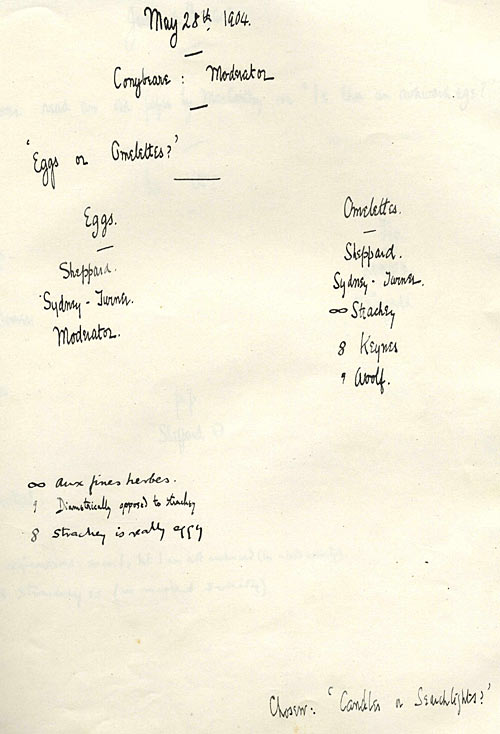 May 28th 1904.
Conybeare : Moderator
'Eggs or Omelettes?'
Eggs.
Sheppard.
Sydney-Turner.
Moderator.
Omelettes.
Sheppard.
Sydney-Turner.
∞ Strachey
8 Keynes
9 Woolf.
∞ aux fines herbes.
9 Diametrically opposed to Strachey
8 Strachey is really eggy
Chosen: 'Candles or Searchlights?'